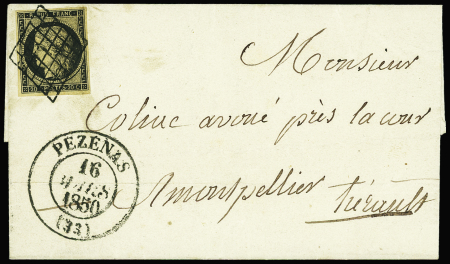 REPUB. FRANC.
20 POSTES 20 C
Monsieur
Coline avoué près la cour
Montpellier hérault
PEZENAS
16
MARS
1850
(33)